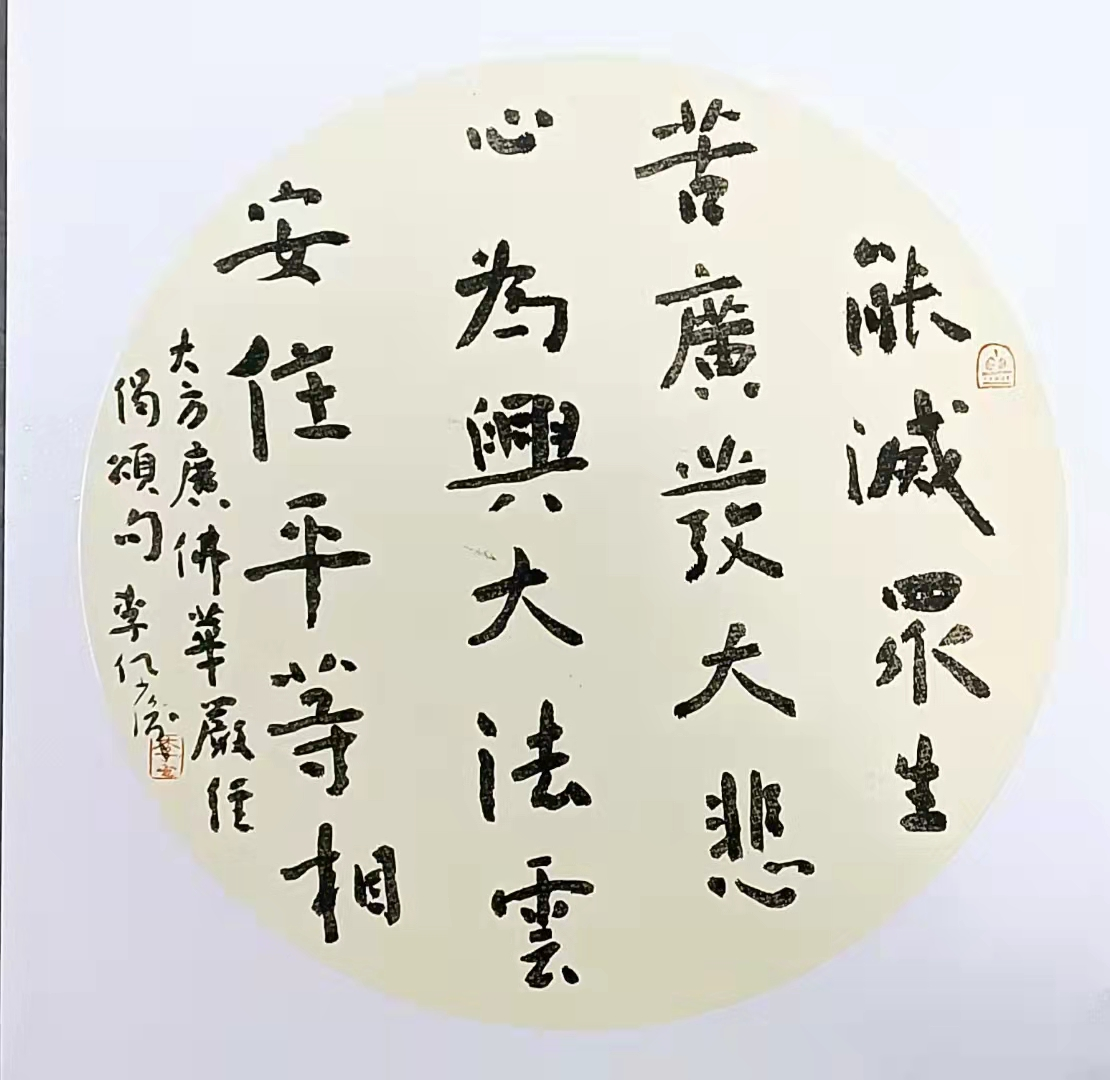 能滅眾生
苦廣發大悲
心為興大法雲
安住平等相
大方廣佛華嚴經
偈頌句 李